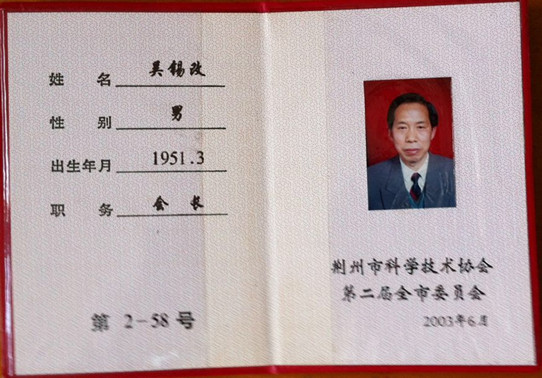 姓 名 吴锡改
性 别 男
出生年月 1951.3
职 务 会 长
第 2-58 号
荆州市科学技术协会
第二届全市委员会
2003年6月